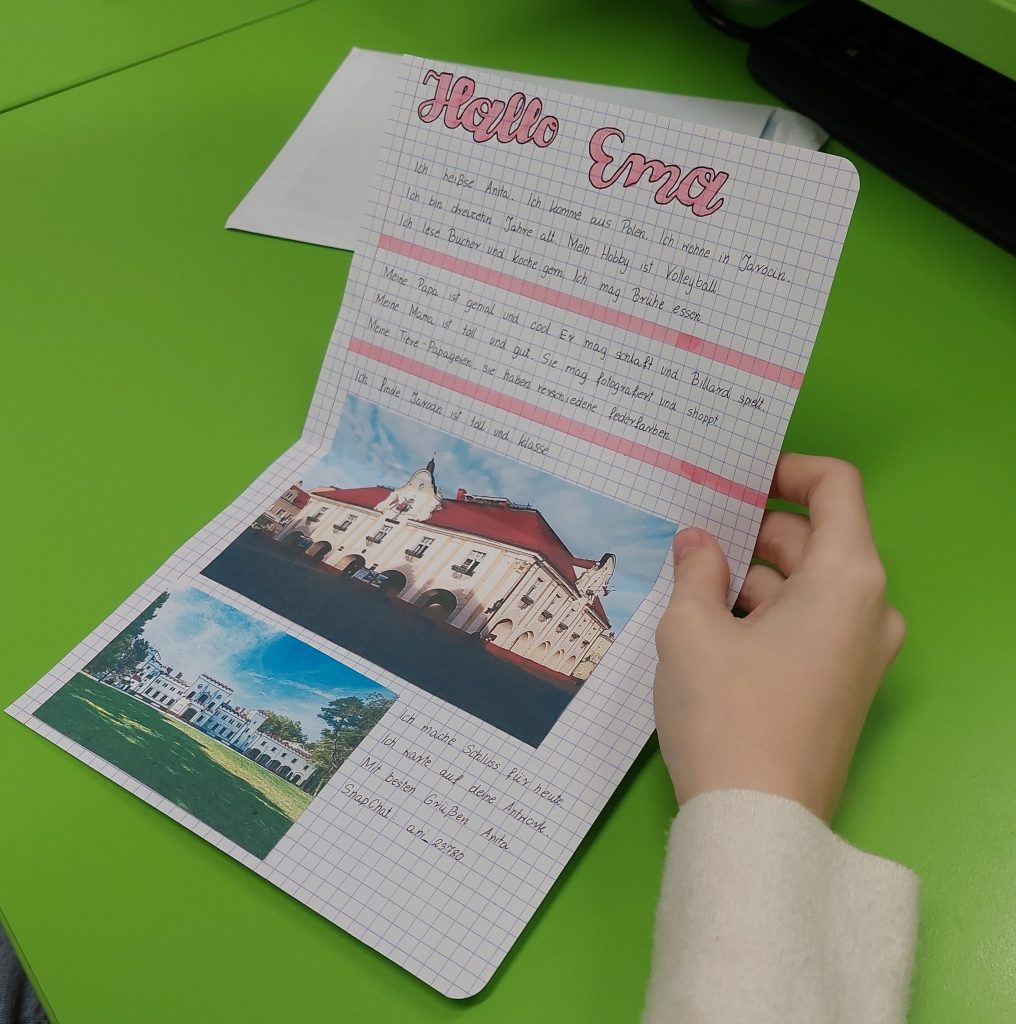 Hallo Ema
Ich heißse Anita. Ich komme aus Polen. Ich wohne in Jarocin.
Ich bin dreizehn Jahre alt. Mein Hobby ist Volleyball.
Ich lese Bucher und koche gern. Ich mag Brühe essen.
Meine Papa ist genial und cool. Er mag schlaft und Billard spielt.
Meine Mama ist toll und gut. Sie mag fotografiert und shoppt.
Meine Tiere-Papageien, sie haben verschiedene federfarben.
Ich finde Jarocin ist toll und klasse.
Ich mache Schluss für heute
Ich warte auf deine Antwort.
Mit besten Grüßen Anita.
SnapChat: ani_23780